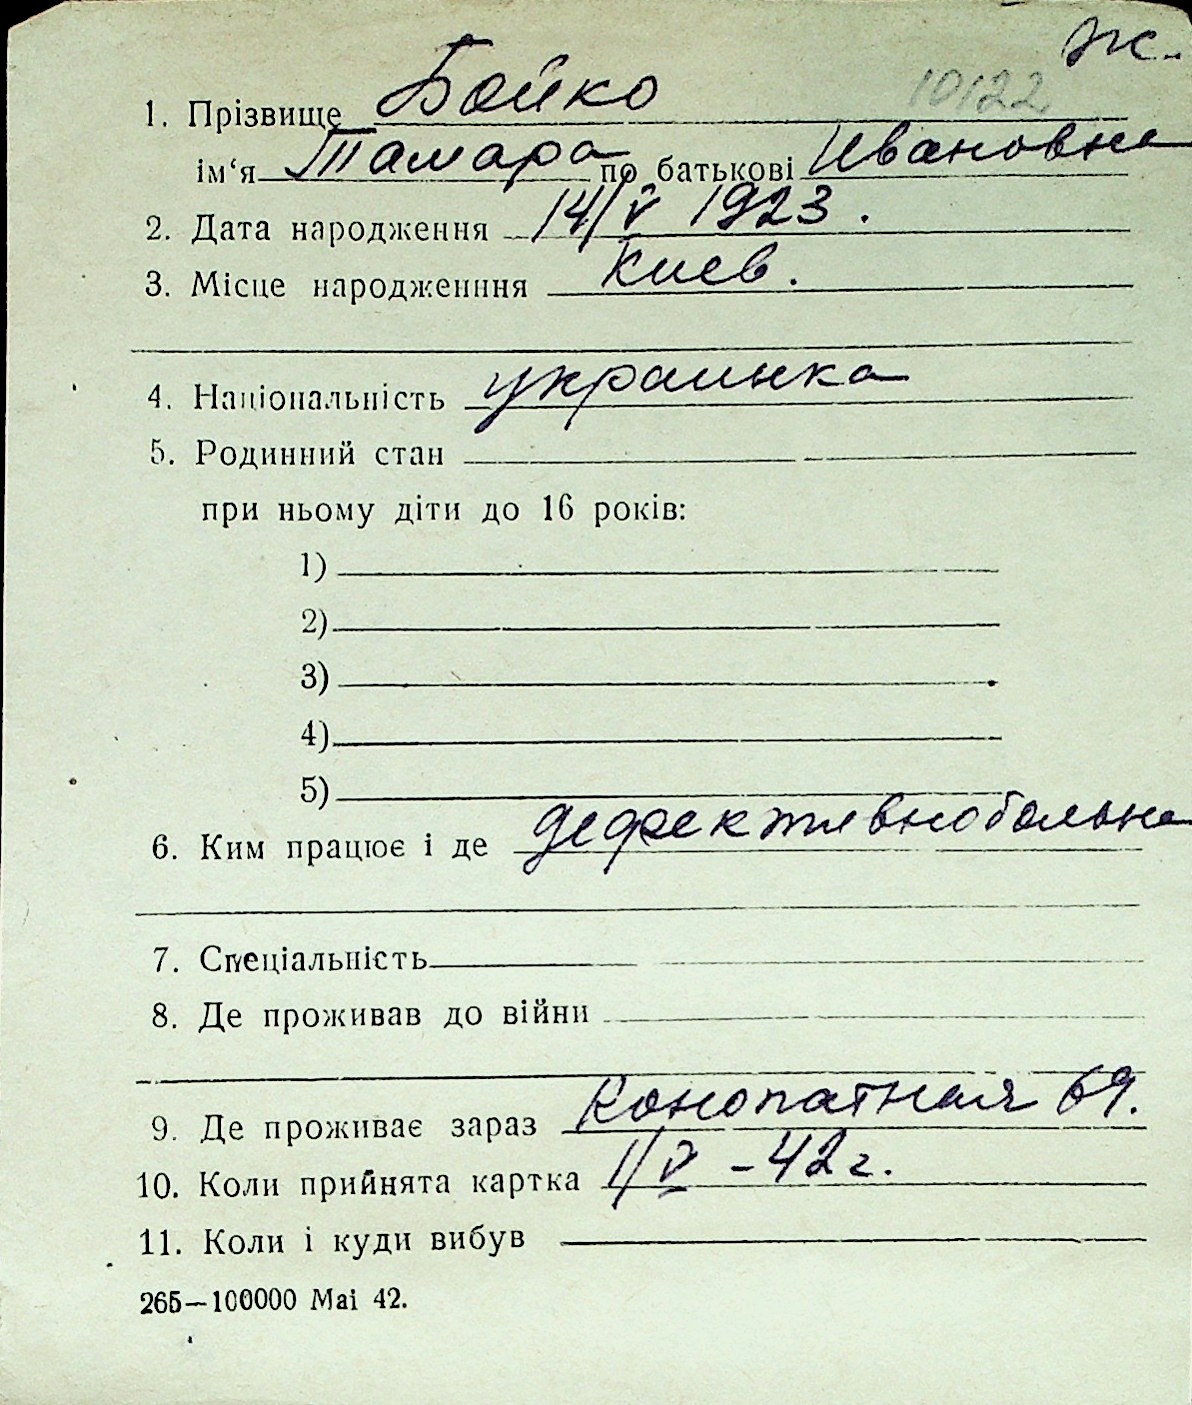 Ж.
10122
1. Прізвище Бойко
ім‘я Тамара по батькові Ивановна
2. Дата народження 14/V 1923.
3. Місце народженння Киев.
4. Національність украинка
5. Родинний стан
при ньому діти до 16 років:
1)
2)
3)
4)
5)
6. Ким працює і де дефективнобольна
7. Спеціальність
8. Де проживав до війни
9. Де проживає зараз Конопатная 69.
10. Коли прийнята картка 1/V – 42 г.
11. Коли і куди вибув
265—100000 Mai 42.